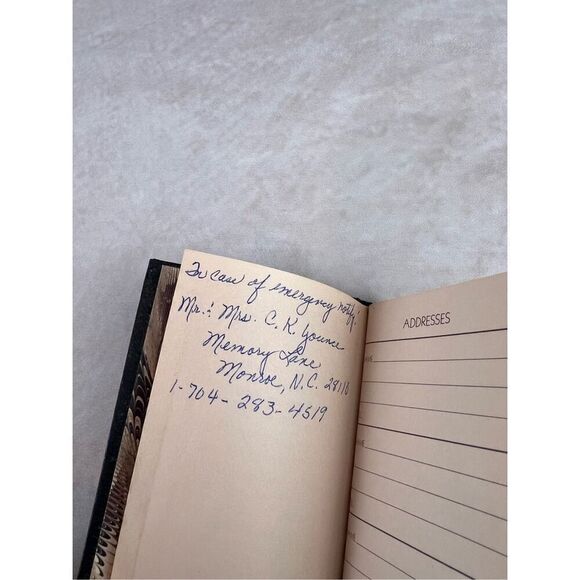 In case of emergency notify:
Mr. & Mrs. C. K. Younce
Memory Lane
Monroe, N.C. 28110
1-704-283-4519
ADDRESSES